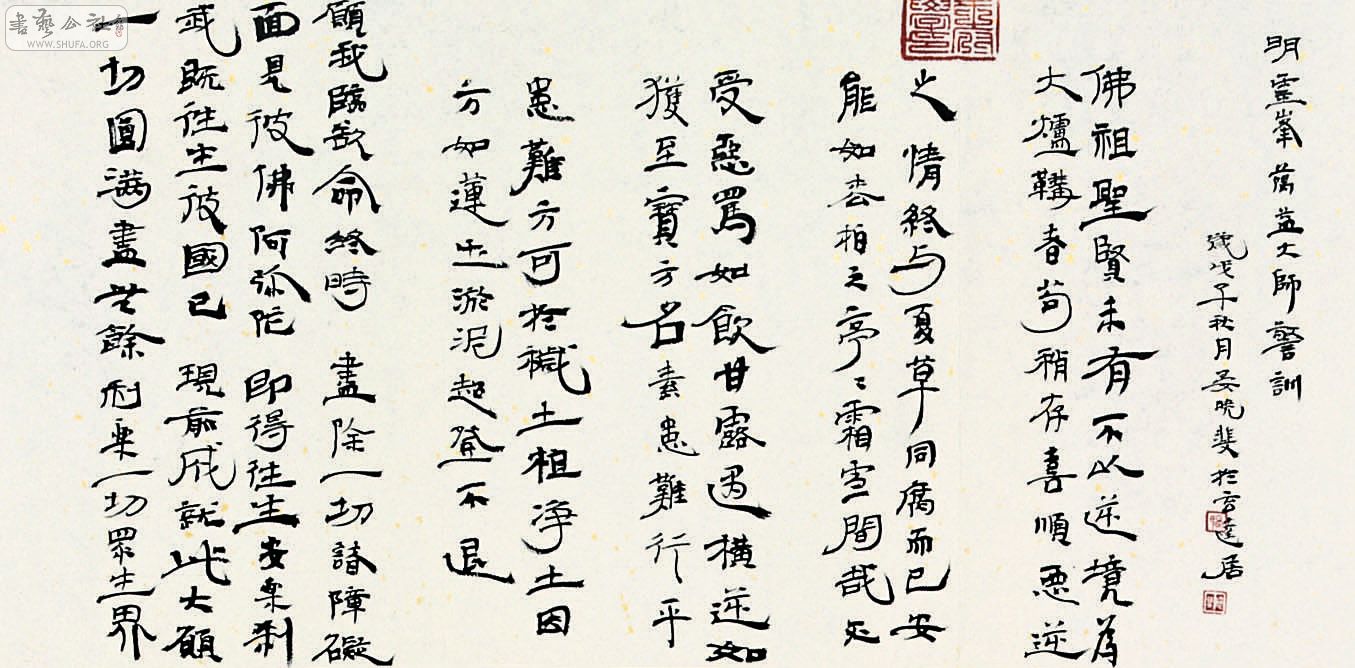 明霊峯蕅益大師警訓
歲戊子秋月晏晚斐於雲達居
佛祖聖賢未有不以逆境為
大爐鞴者苟稍存喜順惡逆
之情終与夏草同腐而已安
能如松柏之亭〻霜雪間哉
受惡罵如飲甘露遇橫逆如
獲至寶方名素患難行乎
患難方可於穢土植淨土因
方如蓮出淤泥超登不退
願我臨欲命終時 盡除一切諸障礙
面見彼佛阿弥陀 即得往生安樂刹
我既往生彼國已 現前成就此大願
一切圓滿盡無餘 利樂一切眾生界
書藝公社
WWW.SHUFA.ORG